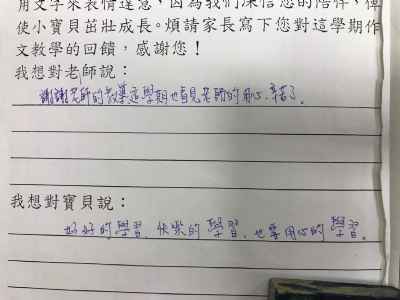 用文字來表情達意，因為我們深信您的陪伴，俾
使小寶貝茁壯成長。煩請家長寫下您對這學期作
文教學的回饋，感謝您！
我想對老師說：
謝謝老師的教導這學期也看見老師的用心，辛苦了。
我想對寶貝說：
好好的學習，快樂的學習，也要用心的學習。